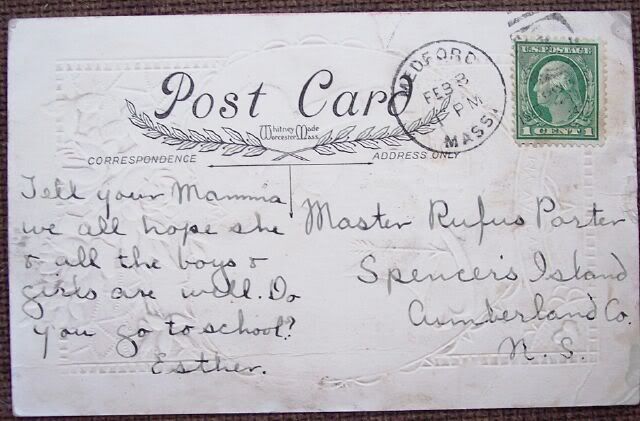 Post Card
Whitney Made
Worcester Mass.
CORRESPONDENCE
ADDRESS ONLY
MEDFORD
FEB 8
PM
MASS.
U.S. POSTAGE
1 CENT 1
Tell your Mamma
we all hope she
& all the boys &
girls are well. Do
you go to school?
Esther.
Master Rufus Porter
Spencer's Island
Cumberland Co.
N. S.